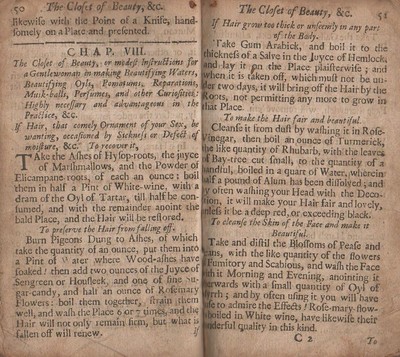 50 The Closet of Beauty, &c.
likewise with the Point of a Knife, hand-
somely on a Place and presented.
CHAP. VIII.
The Closet of Beauty, or modest Instructions for
a Gentlewoman in making Beautifying Waters,
Beautifying Oyls, Pomatums, Reparation,
Musk-balls, Perfumes, and other Curiosities:
Highly necessary and advantageous in the
Practice, &c.
If Hair, that comely Ornament of your Sex, be
wanting, occasioned by Sickness or Defect of
moisture, &c. To recover it,
TAke the Ashes of Hysop-roots, the juyce
of Marshmallows, and the Powder of
Elicampane roots, of each an ounce: boil
them in half a Pint of White-wine, with a
dram of the Oyl of Tartar, till half be con-
sumed, and with the remainder anoint the
bald Place, and the Hair will be restored.
To preserve the Hair from falling off.
Burn Pigeons Dung to Ashes, of which
take the quantity of an ounce, put them into
a Pint of Water where Wood-ashes have
soaked: then add two ounces of the Juyce of
Sengreen or Housleek, and one of fine Su-
gar-candy, and half an ounce of Rosemary
Flowers: boil them together, strain them
well, and wash the Place 6 or 7 times, and the
Hair will not only remain firm, but what is
fallen off will renew.
The Closet of Beauty, &c. 51
If Hair grow too thick or unseemly in any part
of the Body.
Take Gum Arabick, and boil it to the
thickness of a Salve in the Juyce of Hemlock,
and lay it on the Place plaisterwise; and
when it is taken off, which must not be un-
der two days, it will bring off the Hair by the
Roots, not permitting any more to grow in
that Place.
To make the Hair fair and beautiful.
Cleanse it from dust by washing it in Rose-
Vinegar, then boil an ounce of Turmerick,
the like quantity of Rhubarb, with the leaves
of Bay-tree cut small, to the quantity of a
handful, boiled in a quart of Water, wherein
half a pound of Alum has been dissolved; and
by often washing your Head with the Decoc-
tion, it will make your Hair fair and lovely,
unless it be a deep red, or exceeding black.
To cleanse the Skin of the Face and make it
Beautiful.
Take and distil the Blossoms of Pease and
Beans, with the like quantity of the flowers
of Fumitory and Scabious, and wash the Face
with it Morning and Evening, anointing it
afterwards with a small quantity of Oyl of
Myrrh; and by often using it you will have
cause to admire the Effects: Rose-mary flow-
ers boiled in White wine, have likewise their
wonderful quality in this kind.
C 2 To